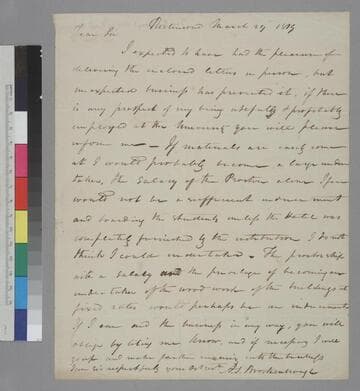 Dear Sir Richmond March 29 1819
I expected to have had the pleasure of
delivering the inclosed letters in person, but
unexpected business has prevented it, if there
is any prospect of my being usefully & profitably
employed at the University you will please
inform me — If materials are easily come
at I would probably become a large under
taker, the Salary of the Proctor alone I fear
would not be a sufficient inducement
and boarding the students unless the Hotel was
completely furnished by the institution I don't
think I could undertake — The proctorship
with a salary and the privilege of becoming an
undertaker of the wood work of the buildings at
fixed rates would perhaps be an inducement
if I can aid the business in any way, you will
oblige by letting me know, and if necessary I will
go up and make further enquiry into the business
Yours respectfully your Obt Svt. A.S. Brockenbrough